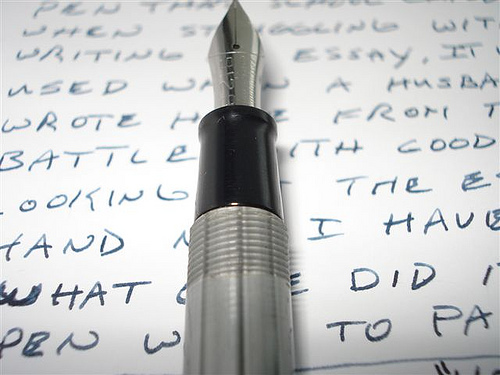 PEN THAT SCHOOL
WHEN STRUGGLING WIT
WRITING ESSAY, IT
USED A HUSBA
WROTE FROM T
BATTLE ITH GOOD
OOKING THE E
HAND I HAVE
WHAT DID I
PEN W TO PA